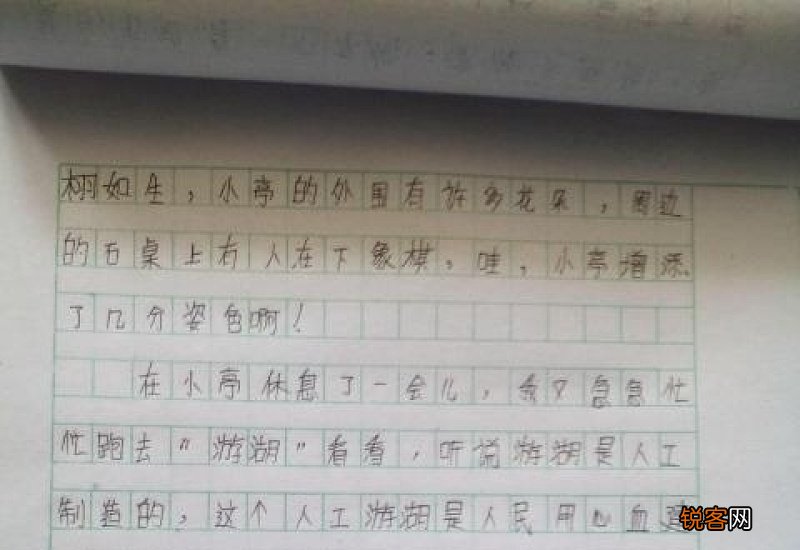 栩如生，小亭的外围有许多花朵，周边
的石桌上有人在下象棋。哇，小亭增添
了几分姿色啊！
在小亭休息了一会儿，我又急急忙
忙跑去“游湖”看看，听说游湖是人工
制造的，这个人工游湖是人民用心血建
锐客网